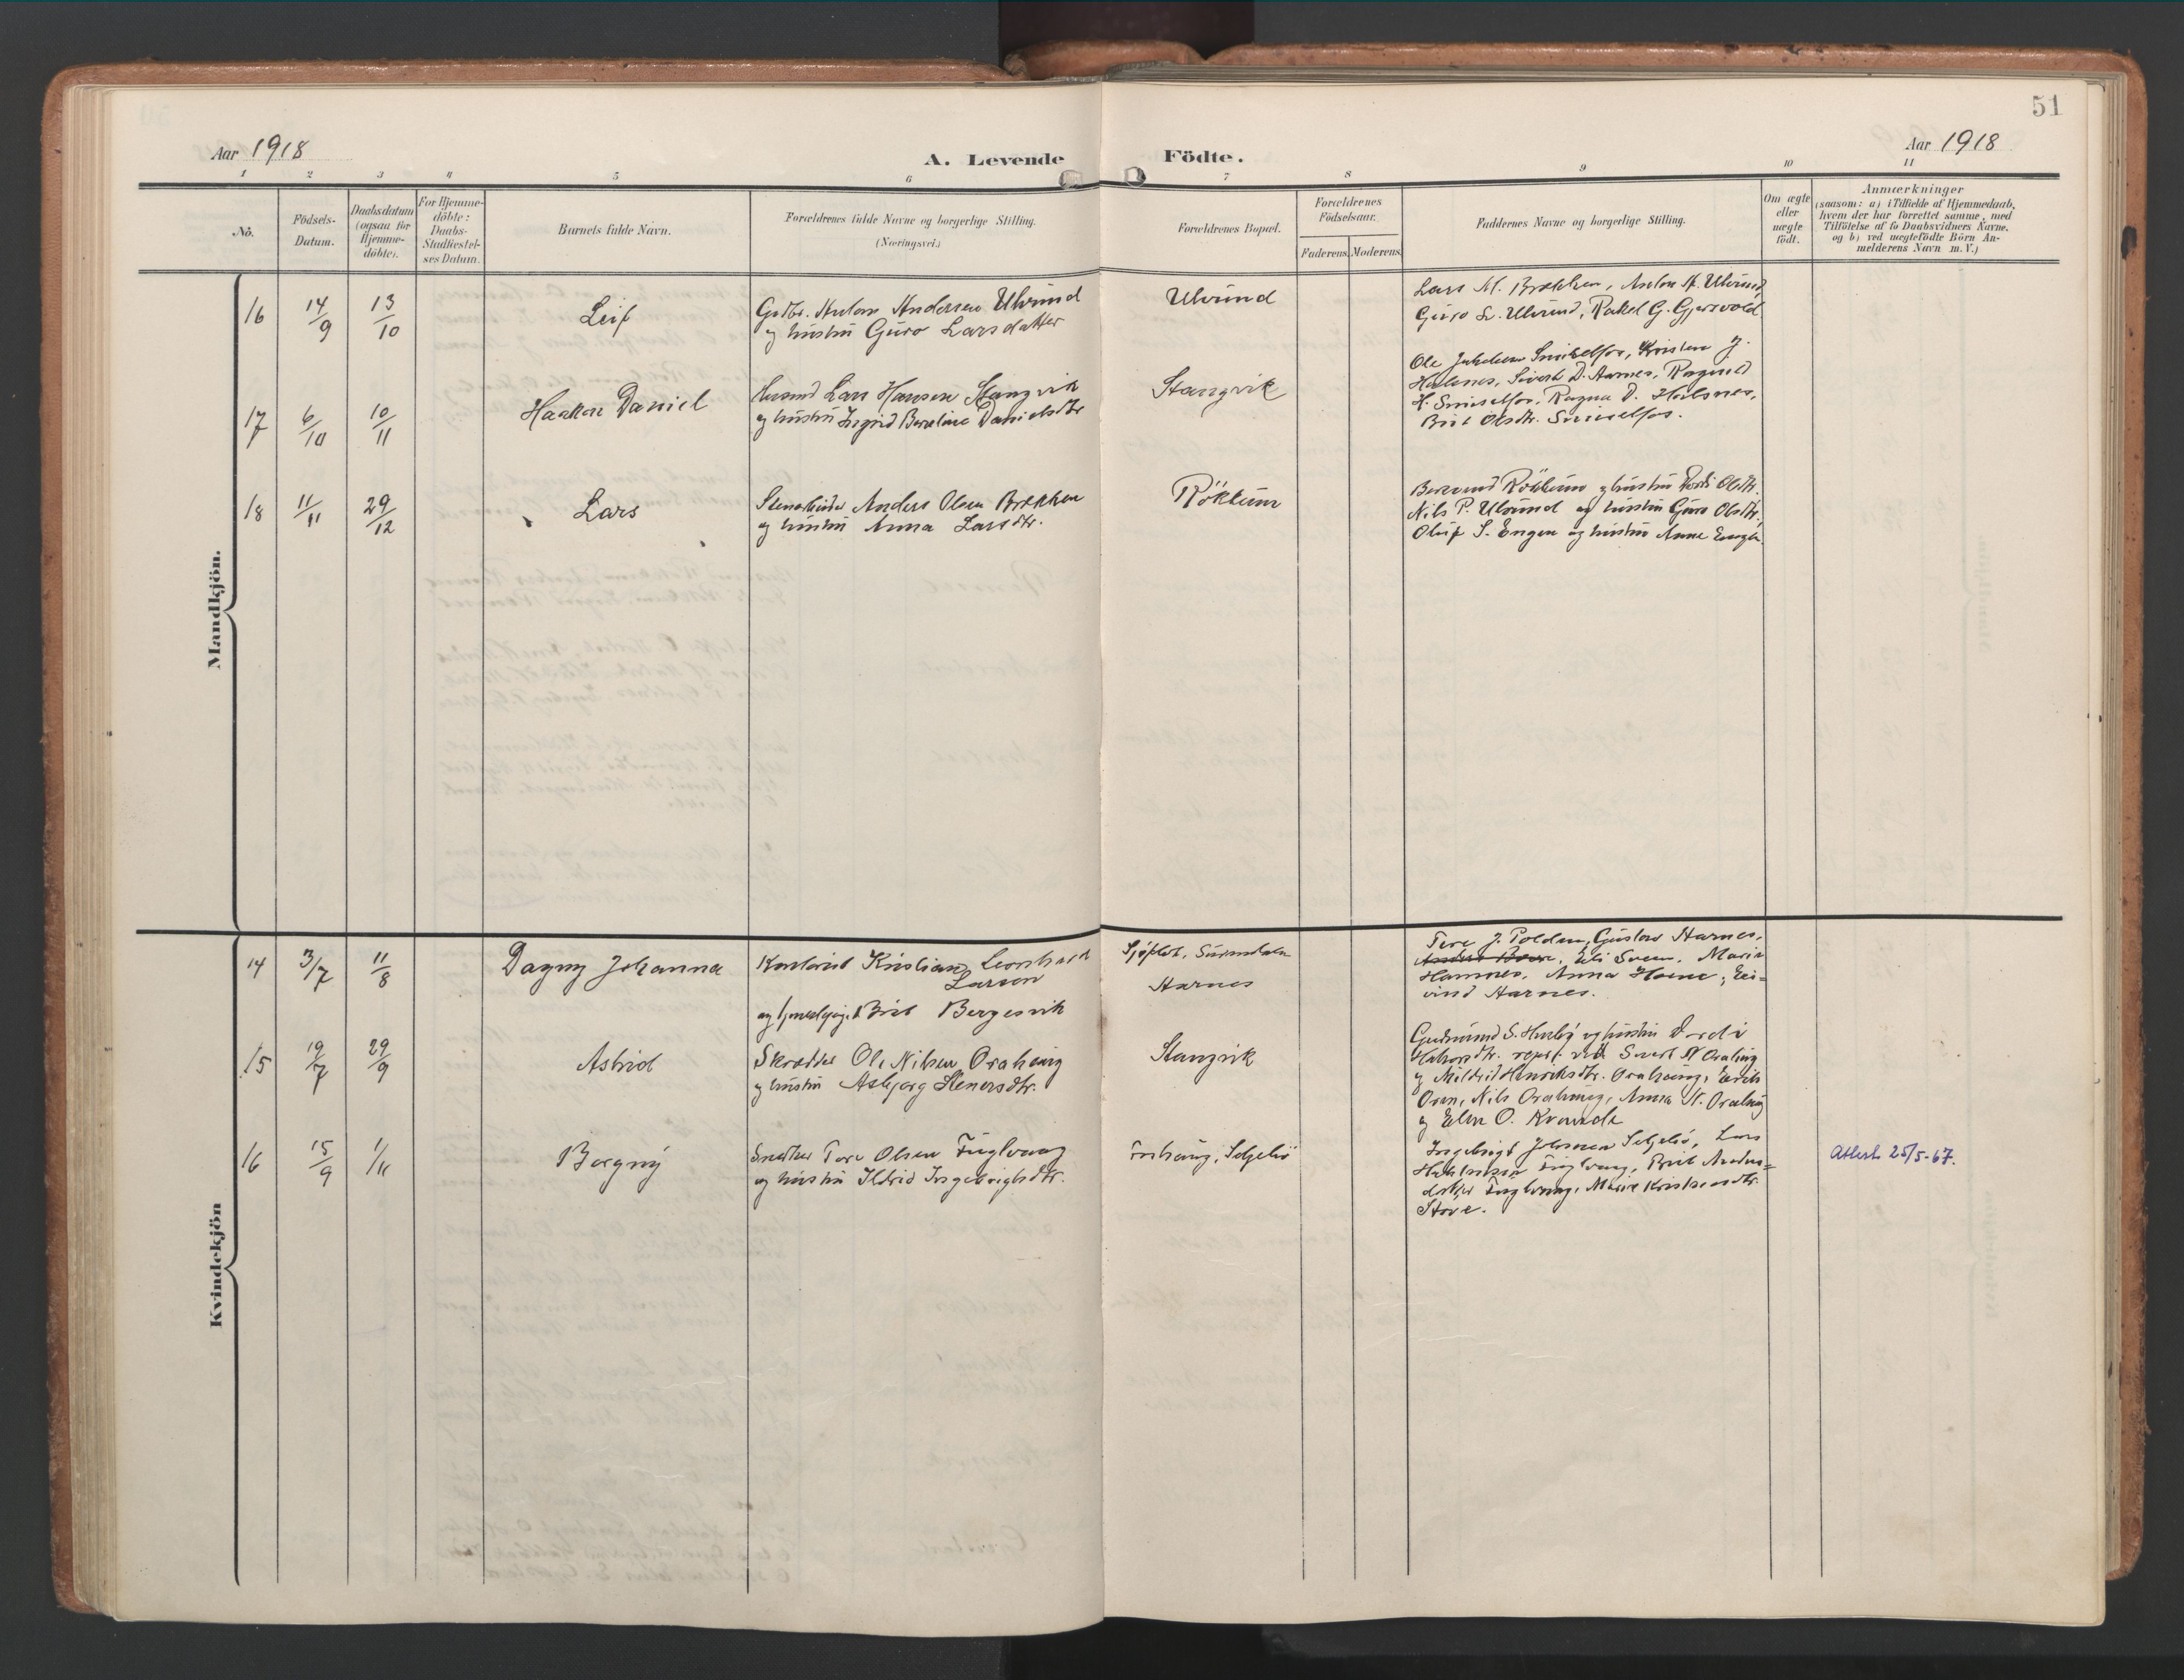 51
Aar 1918
A. Levende Födte.
Aar 1918
1 2 3 4 5 6 7 8 9 10 11
No.
Födsels-
Datum.
Daabsdatum
(ogsaa for
Hjemme-
döbte).
For Hjemme-
döbte:
Daabs-
Stadfæstel-
ses Datum.
Barnets fulde Navn.
Forældrenes fulde Navne og borgerlige Stilling.
(Næringsvei.)
Forældrenes Bopæl.
Forældrenes
Födselsaar.
Faderens. Moderens.
Faddernes Navne og borgerlige Stilling.
Om ægte
eller
uægte
födt.
Anmærkninger
(saasom: a) i Tilfælde af Hjemmedaab,
hvem der har forrettet samme, med
Tilföielse af to Daabsvidners Navne,
og b) ved uægtefödte Börn An-
melderens Navn m. V.)
Mandkjön.
16 14/9 13/10 Leif
Gdbr. Anton Andersen Ulvund
og hustru Guro Larsdatter
Ulvund
Lars M. Brekken, Anton A. Ulvund,
Guro L. Ulvund, Rakel G. Gjersvold
17 6/10 10/11 Haakon Daniel
Lars Hansen Stangvik
og hustru Ingrid Bereline Danielsdtr
Stangvik
Ole Smiselfos, Kristen J.
Halsnes, Sivert D. Aarnes, Ragnild
H. Smiselfos, Ragna D. Holsnes,
Brit Olsdtr. Smiselfos.
18 11/11 29/12 Lars
Anders Olsen Brekken
og hustru Anna Larsdtr.
Røkkum
Røkkum og hustru Olsdtr.
Nils P. Ulvund og hustru Guro Olsdtr.
Oluf S. Engen og hustru Anne Engen.
Kvindekjön
14 3/7 11/8 Dagny Johanna
Kristian Leonhard
Larsen
og Brit Bergesvik
Surendalen
Aarnes
Tore J. Polden, Gustav Harnes,
Eli Sveen, Marie
Hamnes, Anna Home, Ei=
vind Harnes.
15 19/7 29/9 Astrid
Skrædder Ole Nilsen Oræhaug
og hustru Asbjørg Stenersdtr.
Stangvik
Gudmund S. Husby og hustru Dordi
Halvorsdtr. repr. ved Sivert N. Oralaug
og Mildrid Henriksdtr. Orahaug, Eirik
Oren, Nils Orahaug, Anna N. Oralaug
og Elen O. Kvande
16 15/9 1/11 Borgny
Snedker Tore Olsen Fuglevaag
og hustru Ildrid Ingebrigtsdtr.
Seljebø
Ingebrigt Johnsen Seljebø, Lars
Fuglvaag, Brit Anders=
datter Fuglvaag, Marie Kristensdtr.
Støve.
Attest 25/5-67.